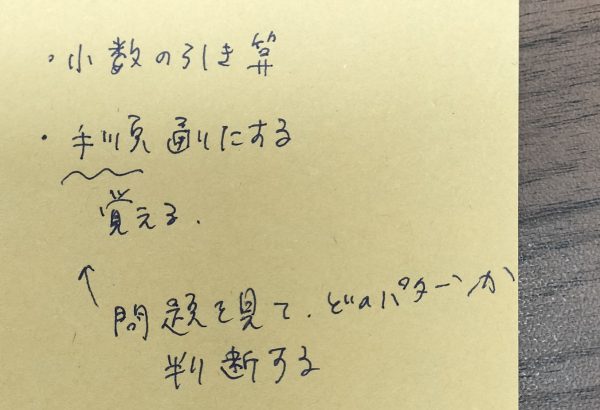 ・小数の引き算
・手順通りにする
覚える.
↑
問題を見て、どのパターンか
判断する